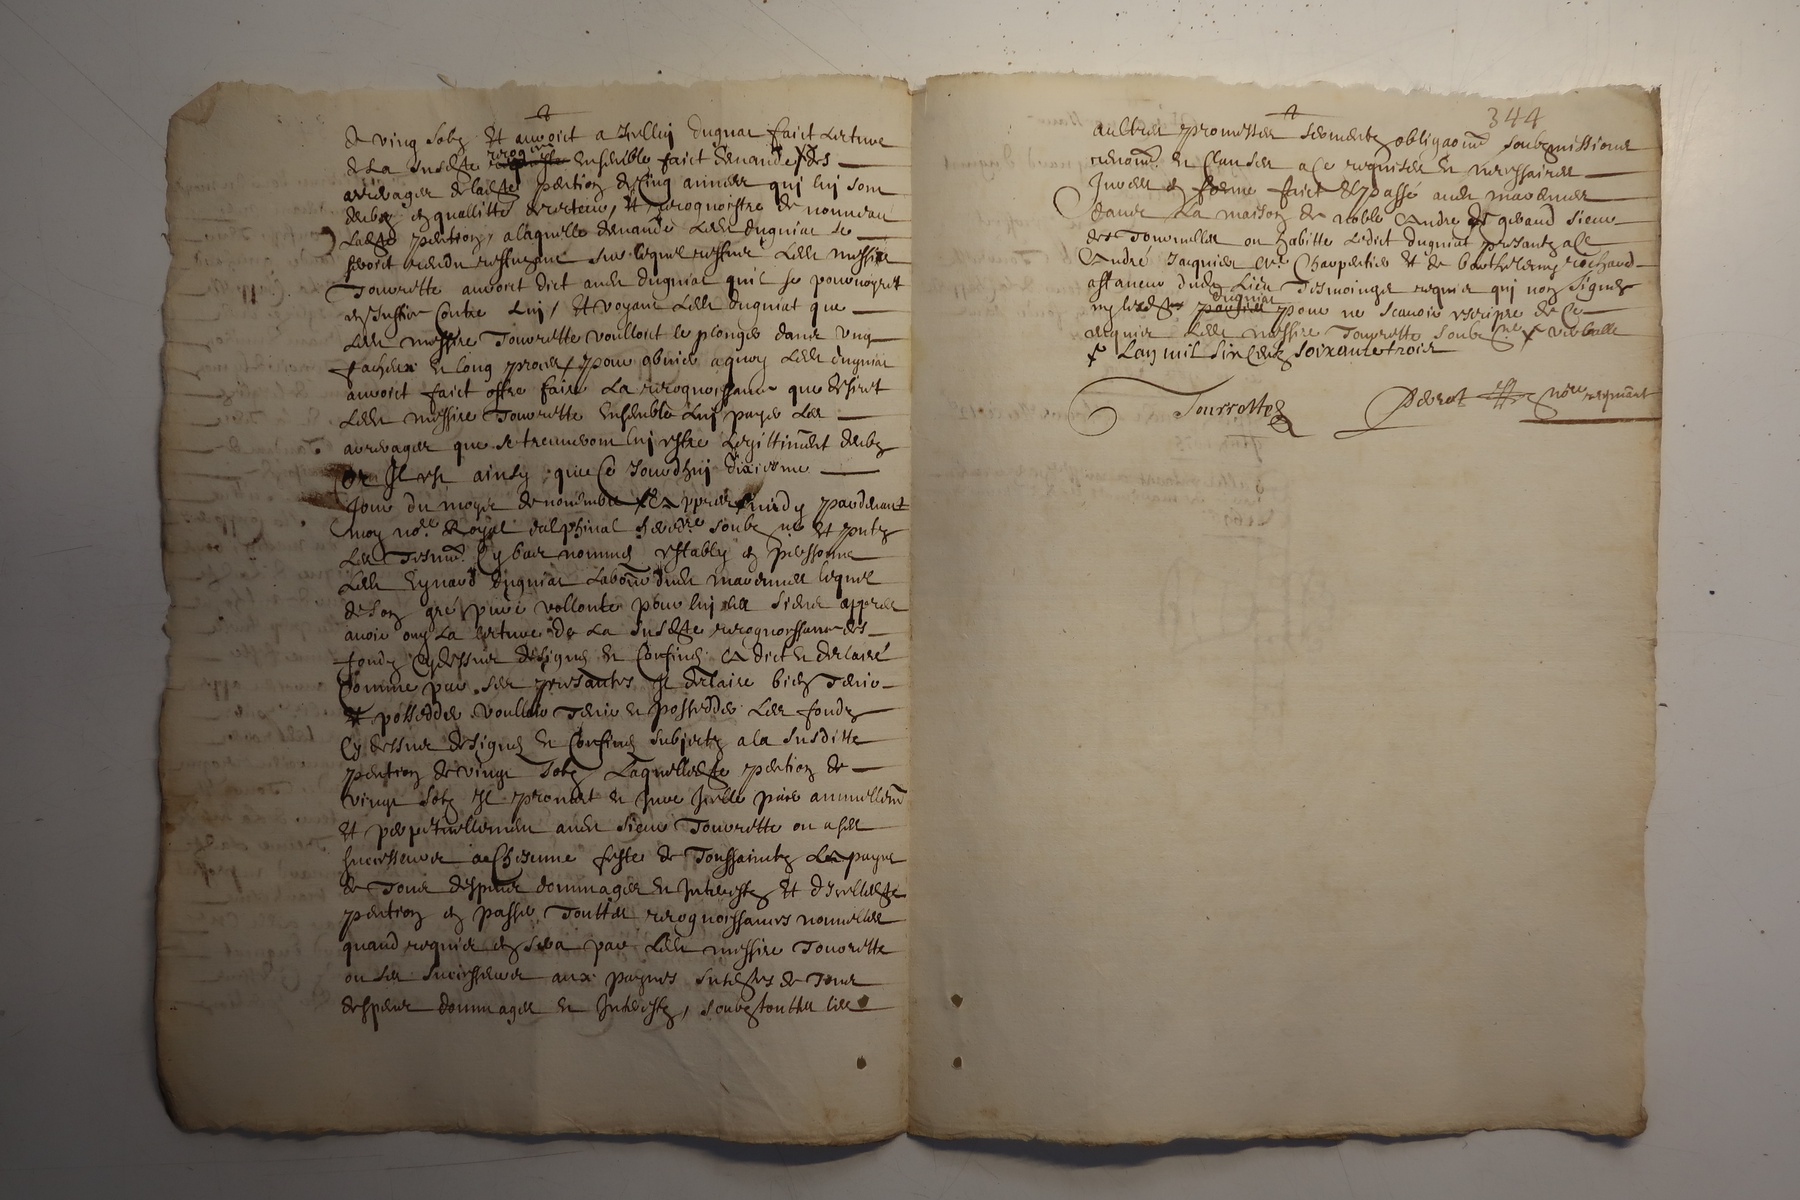 de ving solz Et auvoict a Icelluy duguiat faict lecture
de La susdite recogn.ce ensemble faict demande des
arreyrages de laditte pention de cinq années qui luy sont
deubz en quallitte de recteur, Et recognoistre de nouveau
Ladte pention, a laquelle demande Ledt duguiat se
seroict rendu reffuzant sur lequel reffus Ledt messire
Tourrette auvoict dict audt duguiat quil se pourvoyroit
en Justice contre Luy, Et voyant Ledt duguiat que
Ledt messire Tourrette voulloict le plonger dans ung
facheux et long proces, pour obvier a quoy Ledt duguiat
auvoict faict offre faire La recognoissance que desiroit
Ledt messire Tourrette Ensemble Luy payer Les
arreyages que se treuveront luy estre Legittimement deubz
Or Il est ainsy que Ce Jourdhuy dixiesme
Jour du moys de novembre appres midy pardevant
moy no.re Royal dalphinal soubz.né Et pntz
Les Tesmo. Cy bas nommes estably en personne
Ledt Eynard duguiat Labour dudt lequel
de son gré pure vollonte pour luy et les siens appres
avoir ouy La lecture de La susdte recognoissance des
fondz Cy dessus designes et Confines A dict et declairé
Comme par ses presantes Il declaire bien Tenir
Et posseder voulloir Tenir et posseder Les fondz
Cy dessus designes et Confines subjectz a la susditte
pention de vingt solz Laquelle dte pention de
vingt solz Il promet et Jure Icelle paier annuellemt
Et perpetuellement audt sieur Tourrette ou a ses
successeurs a Chescune feste de Toussainctz a payne
de Tous despens dommages et Interestz Et d'Icelle dte
pention en passer Touttes recognoissances nouvelles
quand requis en sera par Ledt messire Tourrette
ou ses successeurs aux paynes susdtes de Tous
despens dommages et Interestz, soubz touttes les
344
aultres promesses sermentz obligaons soubzmissions
renon. et Clauses a Ce requises et necessaires
Jurées en forme faict Et passé audt
dans La maison de noble Andre gebaud sieur
des Tournelles ou habitte Ledict duguiat presantz a Ce
Andre Jacquier me. Charpentier Et de barthelemy rochaud
affaneur dudt Lieu Tesmoings requis qui nont signes
ny Ledt duguiat pour ne scavoir escripre de Ce
requis Ledt messire Tourrette soubz.né
Lan mil six Centz soixante trois
Tourrette
no.re recepvant